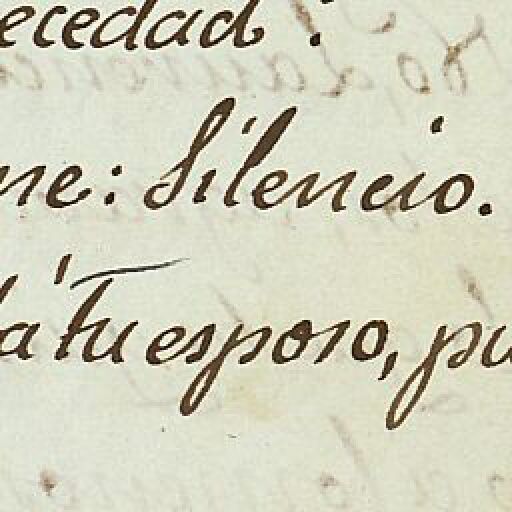 ecedad:
ne: Silencio.
la tu esposo, pu